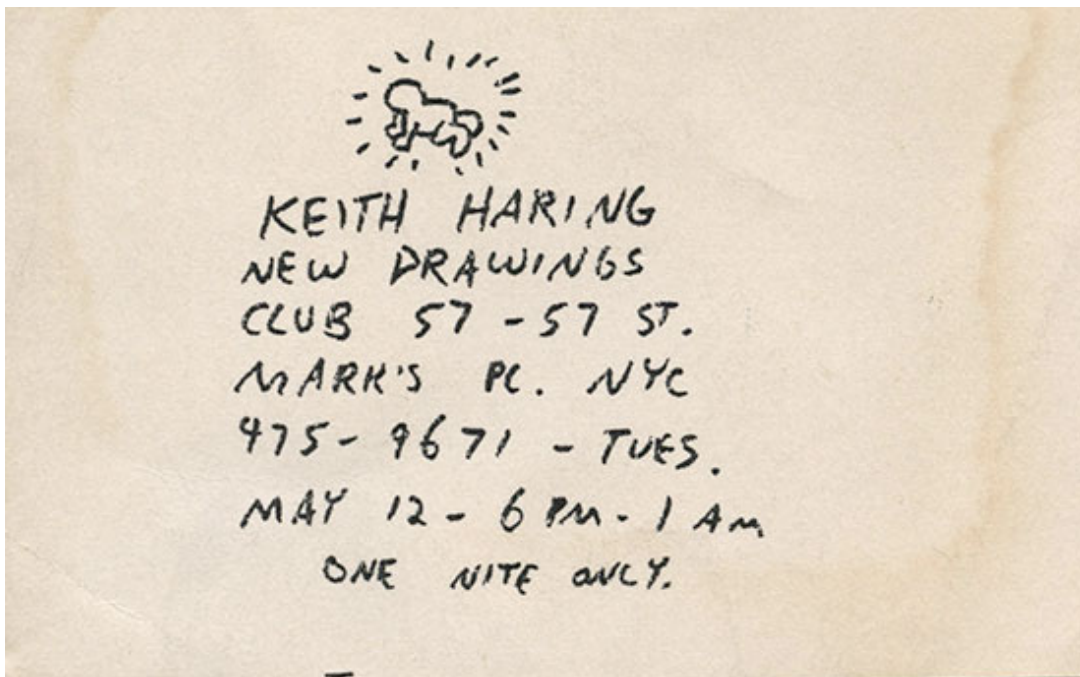 KEITH HARING
NEW DRAWINGS
CLUB 57 - 57 ST.
MARK'S PL. NYC
475 - 9671 - TUES.
MAY 12 - 6 PM - 1 AM
ONE NITE ONLY.